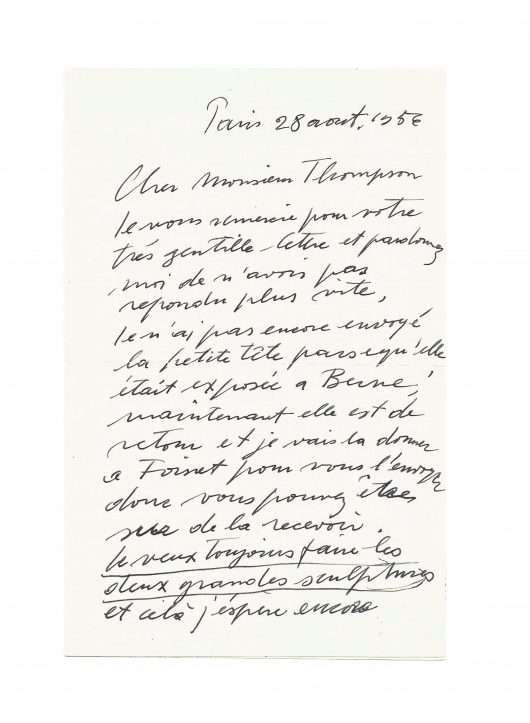 Paris 28 aout. 1956
Cher Monsieur Thompson
Je vous remercie pour votre
très gentille lettre et pardonnez
moi de n'avoir pas
repondu plus vite,
Je n'ai pas encore envoyé
la petite tête parsequ'elle
était exposée a Berne,
maintenant elle est de
retour et je vais la donner
a Foinet pour vous l'envoyer
donc vous pouvez êtres
sur de la recevoir.
Je veux toujours faire les
deux grandes sculptures
et celà j'éspère encore